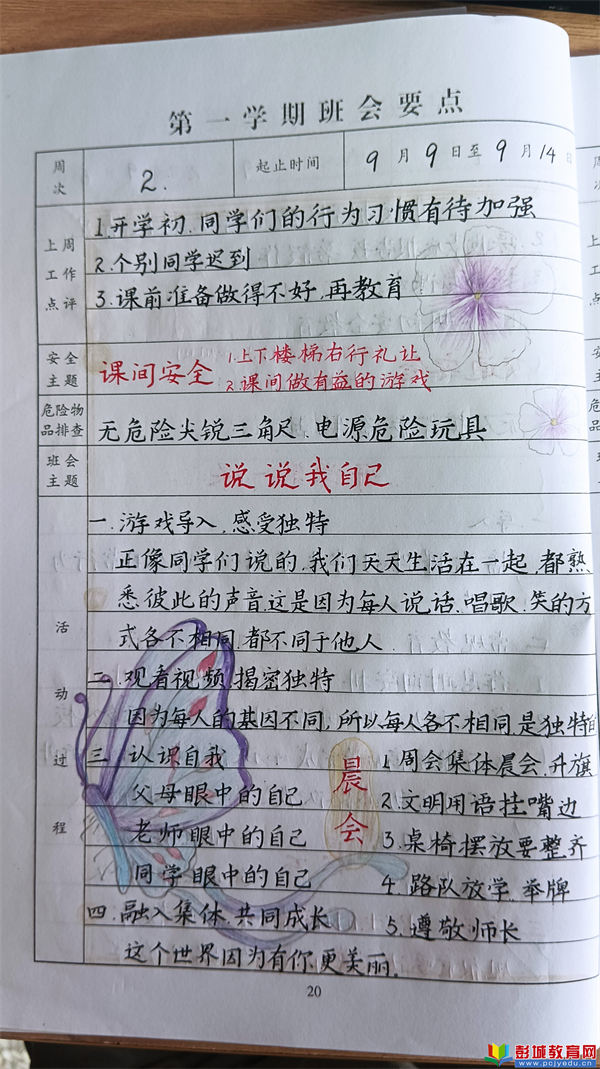 第一学期班会要点
周次 2. 起止时间 9月9日至9月14日
上周工作点评
1.开学初.同学们的行为习惯有待加强
2.个别同学迟到
3.课前准备做得不好,再教育
安全主题 课间安全 1.上下楼梯右行礼让
2.课间做有益的游戏
危险物品排查 无危险尖锐三角尺.电源危险玩具
班会主题 说说我自己
活动过程
一.游戏导入,感受独特
正像同学们说的,我们天天生活在一起,都熟
悉彼此的声音这是因为每人说话.唱歌.笑的方
式各不相同.都不同于他人.
二.观看视频,揭密独特
因为每人的基因不同,所以每人各不相同是独特的
三.认识自我
父母眼中的自己
老师眼中的自己
同学眼中的自己
四.融入集体.共同成长
这个世界因为有你更美丽.
晨会
1.周会集体晨会.升旗
2.文明用语挂嘴边
3.桌椅摆放要整齐
4.路队放学.举牌
5.遵敬师长
20
彭城教育网
www.pcjyedu.cn